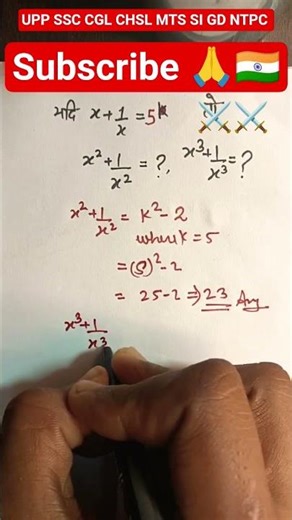 UPP SSC CGL CHSL MTS SI GD NTPC
Subscribe 🙏🇮🇳
यदि x + 1/x = 5 तो
x² + 1/x² = ?, x³ + 1/x³ = ?
x² + 1/x² = k² - 2
where k = 5
= (5)² - 2
= 25 - 2 ⇒ 23 Ans
x³ + 1/x³